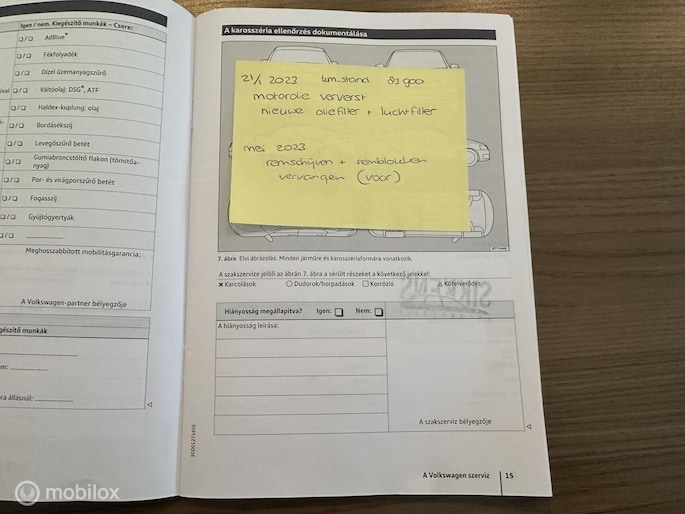 Igen / nem. Kiegészítő munkák – Csere:
❏/❏ AdBlue®
❏/❏ Fékfolyadék
❏/❏ Dízel üzemanyagszűrő
❏/❏ Váltóolaj: DSG®, ATF
❏/❏ Haldex-kuplung: olaj
❏/❏ Bordásékszíj
❏/❏ Levegőszűrő betét
❏/❏ Gumiabroncstöltő flakon (tömítőanyag)
❏/❏ Por- és virágporszűrő betét
❏/❏ Fogasszíj
❏/❏ Gyújtógyertyák
Meghosszabbított mobilitásgarancia:
A Volkswagen-partner bélyegzője
egészítő munkák
A karosszéria ellenőrzés dokumentálása
2023 km.stand
motorolie ververst
nieuwe oliefilter + luchtfilter
mei 2023
remschijven + remblokken
vervangen (voor)
7. ábra Elvi ábrázolás. Minden járműre és karosszériaformára vonatkozik.
A szakszervize jelöli az ábrán 7. ábra a sérült részeket a következő jelekkel:
✕ Karcolások ○ Dudorok/horpadások □ Korrózió △ Kőfelverődés
Hiányosság megállapítva? Igen: ❏ Nem: ❏
A hiányosság leírása:
A szakszerviz bélyegzője
A Volkswagen szerviz 15
mobilox